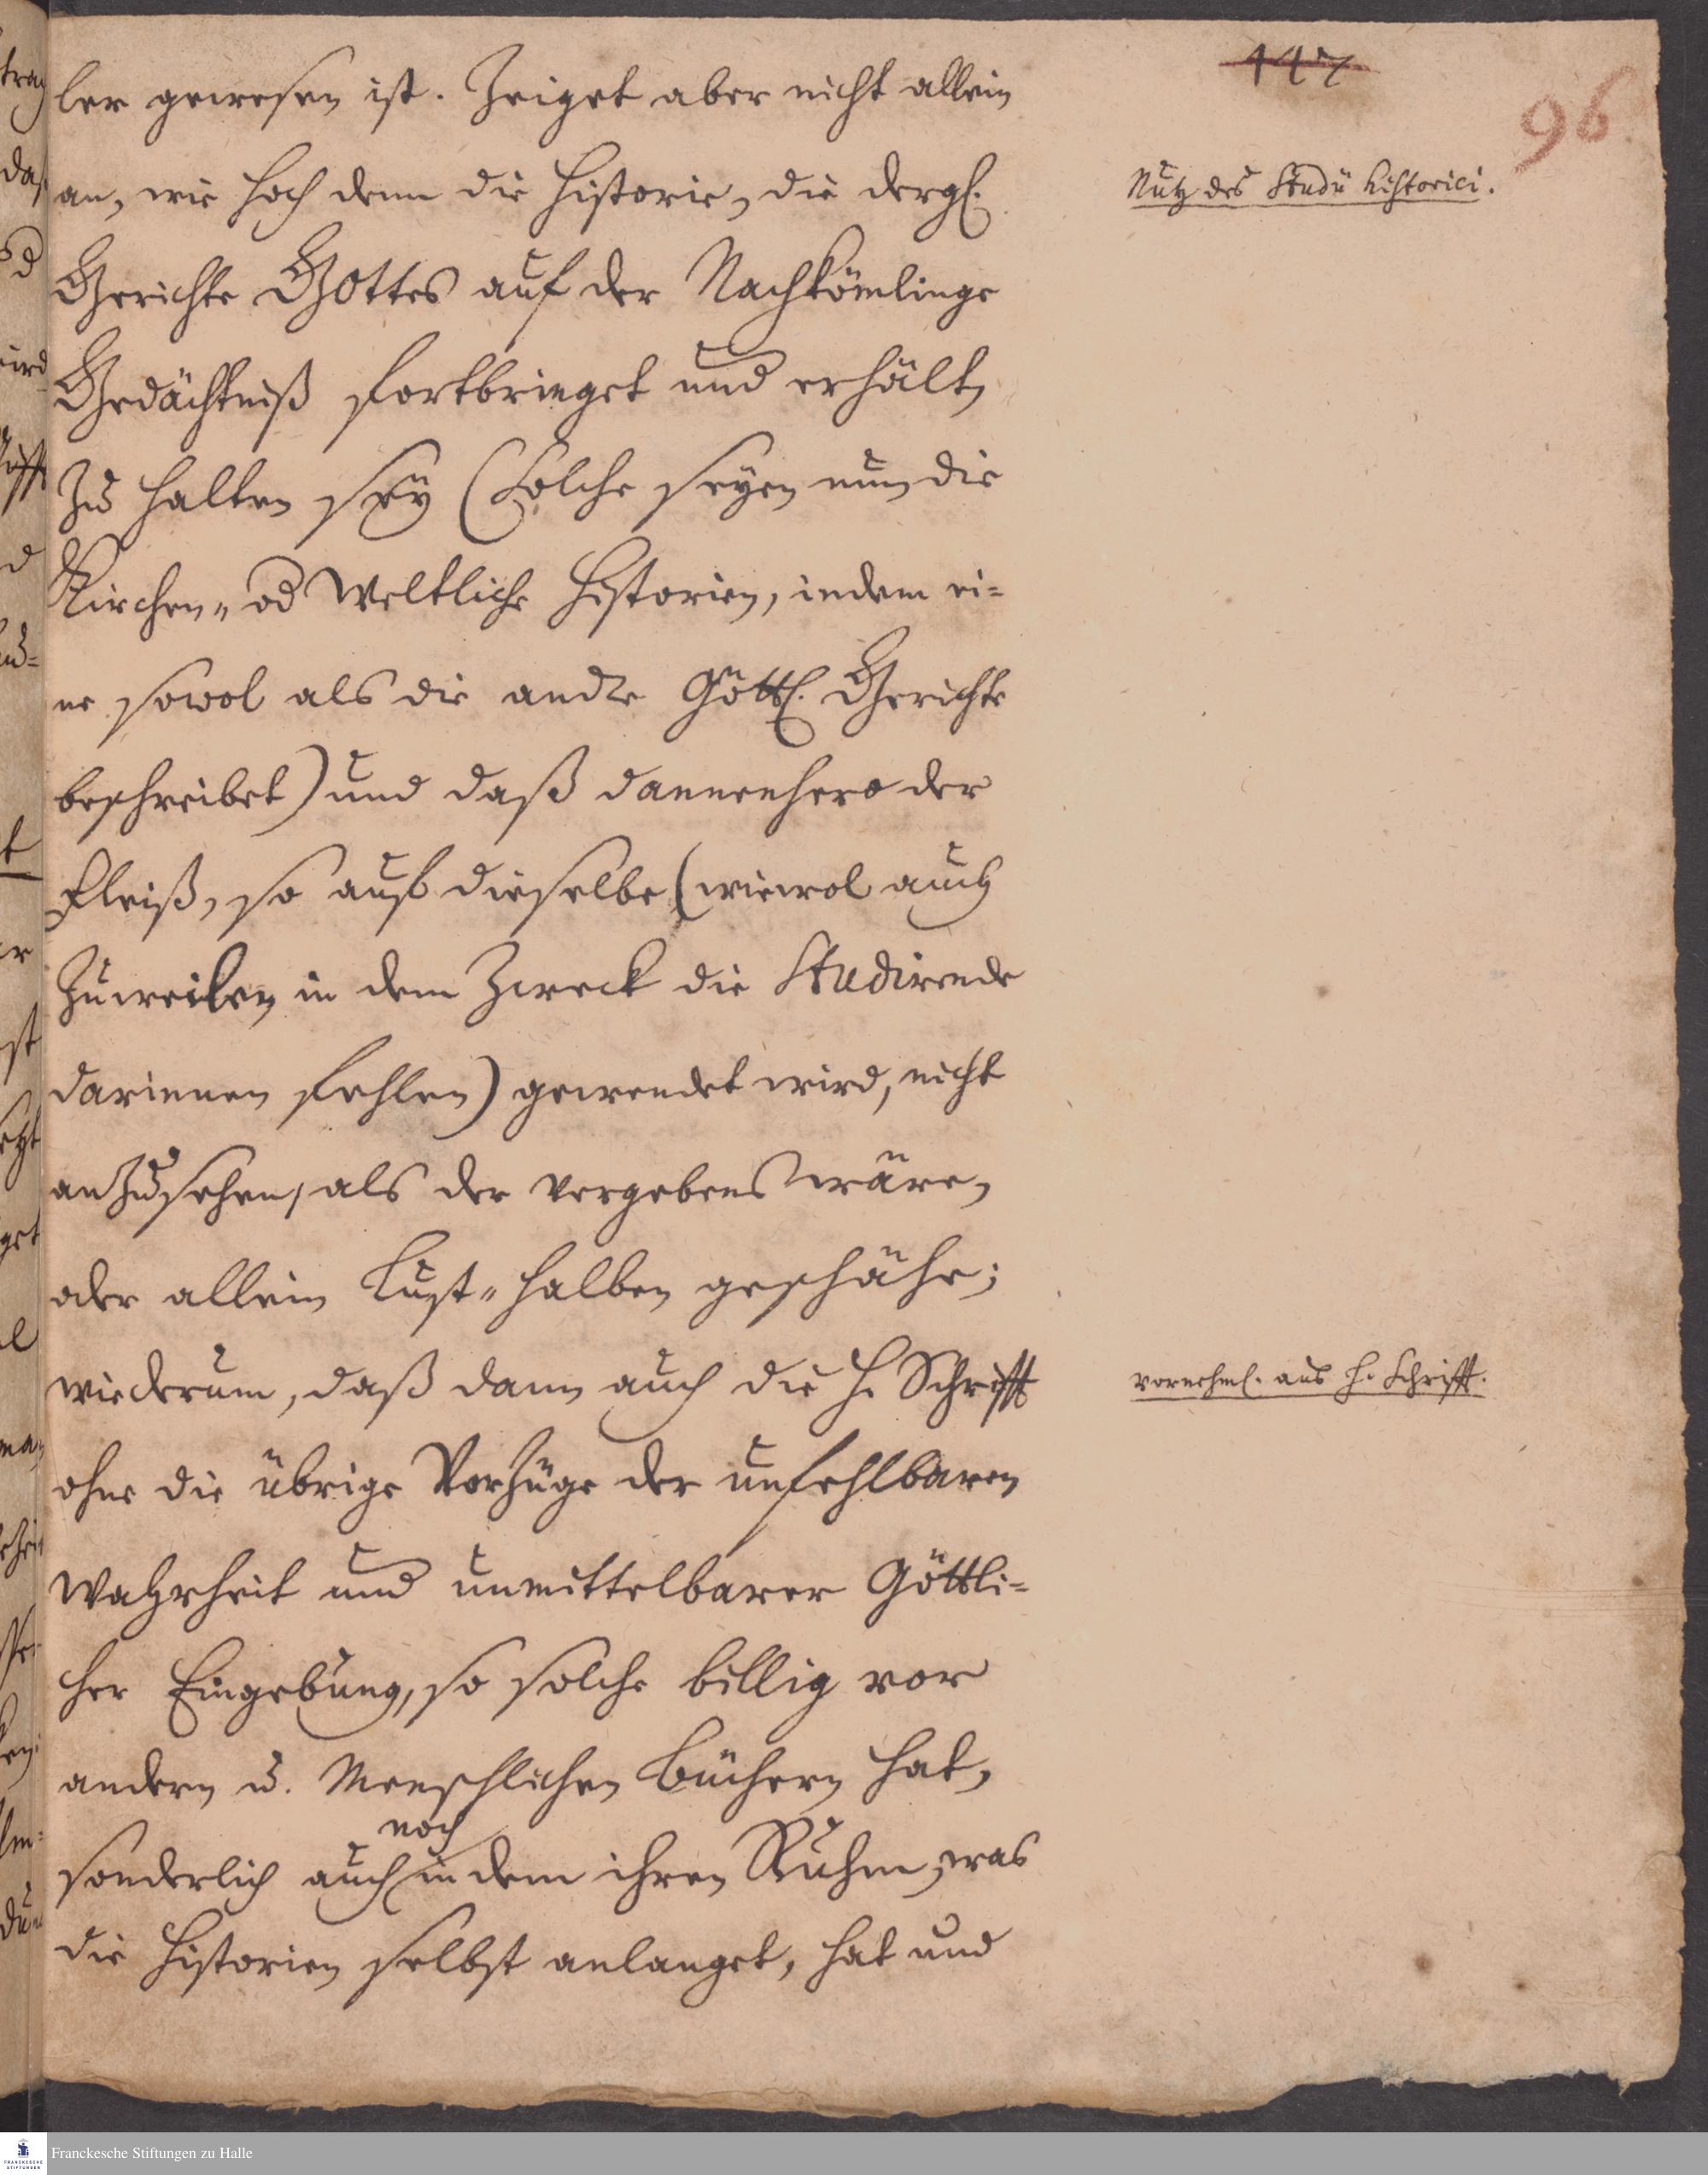 147
96
ler gewesen ist. Zeiget aber nicht allein
an, wie hoch denn die Historie, die dergl.
Nutz des Studii historici.
Gerichte Gottes auf der Nachkömlinge
Gedächtniß fortbringet und erhält,
zu halten seÿ (Solche seyen nun die
Kirchen- od Weltliche Historien, indem ei-
ne sowol als die andre Göttl. Gerichte
beschreibet) und daß dannenhero der
Fleiß, so auf dieselbe (wiewol auch
zuweilen in dem Zweck die Studirende
darinnen fehlen) gewendet wird, nicht
anzusehen, als der vergebens wäre,
oder allein Lust-halben geschähe;
wiederum, daß dann auch die H. Schrifft
vornehml. aus H. Schrifft.
ohne die übrige Vorzüge der unfehlbaren
Wahrheit und unmittelbarer Göttli-
cher Eingebung, so solche billig vor
andern u. Menschlichen Büchern hat,
noch
sonderlich auch in dem ihren Ruhm, was
die Historien selbst anlanget, hat und
Franckesche Stiftungen zu Halle